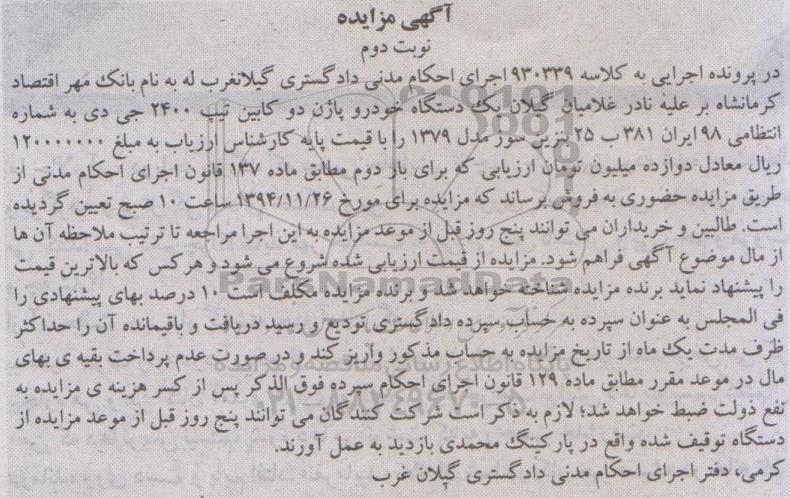 آگهی مزایده
نوبت دوم
در پرونده اجرایی به کلاسه ۹۳۰۳۳۹ اجرای احکام مدنی دادگستری گیلانغرب له به نام بانک مهر اقتصاد
کرمانشاه بر علیه نادر غلامیان گیلان یک دستگاه خودرو پاژن دو کابین تیپ ۲۴۰۰ جی دی به شماره
انتظامی ۹۸ ایران ۳۸۱ ب ۲۵ بنزین سوز مدل ۱۳۷۹ را با قیمت پایه کارشناس ارزیاب به مبلغ ۱۲۰۰۰۰۰۰۰
ریال معادل دوازده میلیون تومان ارزیابی که برای بار دوم مطابق ماده ۱۳۷ قانون اجرای احکام مدنی از
طریق مزایده حضوری به فروش برساند که مزایده برای مورخ ۱۳۹۴/۱۱/۲۶ ساعت ۱۰ صبح تعیین گردیده
است. طالبین و خریداران می توانند پنج روز قبل از موعد مزایده به این اجرا مراجعه تا ترتیب ملاحظه آن ها
از مال موضوع آگهی فراهم شود. مزایده از قیمت ارزیابی شده شروع می شود و هر کس که بالاترین قیمت
را پیشنهاد نماید برنده مزایده شناخته خواهد شد و برنده مزایده مکلف است ۱۰ درصد بهای پیشنهادی را
فی المجلس به عنوان سپرده به حساب سپرده دادگستری تودیع و رسید دریافت و باقیمانده آن را حداکثر
ظرف مدت یک ماه از تاریخ مزایده به حساب مذکور واریز کند و در صورت عدم پرداخت بقیه ی بهای
مال در موعد مقرر مطابق ماده ۱۲۹ قانون اجرای احکام سپرده فوق الذکر پس از کسر هزینه ی مزایده به
نفع دولت ضبط خواهد شد؛ لازم به ذکر است شرکت کنندگان می توانند پنج روز قبل از موعد مزایده از
دستگاه توقیف شده واقع در پارکینگ محمدی بازدید به عمل آورند.
کرمی، دفتر اجرای احکام مدنی دادگستری گیلان غرب
ParsNamadData